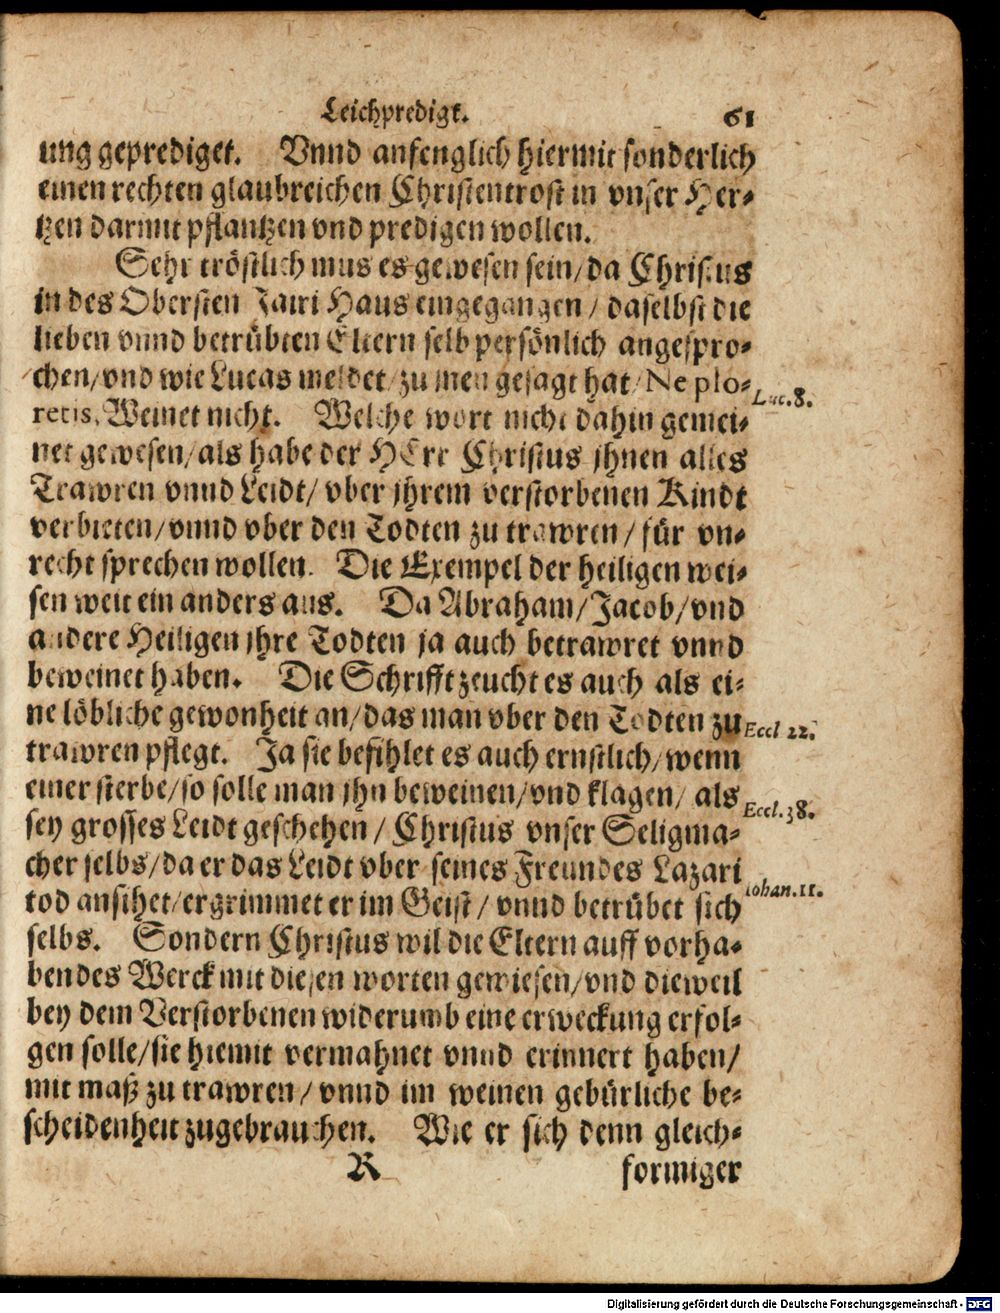 Leichpredigt. 61
ung geprediget. Vnnd anfenglich hiermit sonderlich
einen rechten glaubreichen Christentrost in vnser Her-
tzen darmit pflantzen vnd predigen wollen.
Sehr tröstlich mus es gewesen sein/ da Christus
in des Obersten Jairi Haus eingegangen / daselbst die
lieben vnnd betrübten Eltern selb persönlich angespro-
chen/ vnd wie Lucas meldet/ zu jnen gesagt hat/ Ne plo- Luc.8.
retis, Weinet nicht. Welche wort nicht dahin gemei-
net gewesen/ als habe der HErr Christus jhnen alles
Trawren vnnd Leidt/ vber jhrem verstorbenen Kindt
verbieten/ vnnd vber den Todten zu trawren / für vn-
recht sprechen wollen. Die Exempel der heiligen wei-
sen weit ein anders aus. Da Abraham/ Jacob/ vnd
andere Heiligen jhre Todten ja auch betrawret vnnd
beweinet haben. Die Schrifft zeucht es auch als ei-
ne löbliche gewonheit an/ das man vber den Todten zu Eccl 22.
trawren pflegt. Ja sie befihlet es auch ernstlich/ wenn
einer sterbe/ so solle man jhn beweinen/ vnd klagen/ als Eccl.38.
sey grosses Leidt geschehen / Christus vnser Seligma-
cher selbs/ da er das Leidt vber seines Freundes Lazari
tod ansihet/ ergrimmet er im Geist / vnnd betrübet sich Iohan.11.
selbs. Sondern Christus wil die Eltern auff vorha-
bendes Werck mit diesen worten gewiesen/ vnd dieweil
bey dem Verstorbenen widerumb eine erweckung erfol-
gen solle/ sie hiemit vermahnet vnnd erinnert haben/
mit maß zu trawren / vnnd im weinen gebürliche be-
scheidenheit zugebrauchen. Wie er sich denn gleich-
R formiger
Digitalisierung gefördert durch die Deutsche Forschungsgemeinschaft - DFG